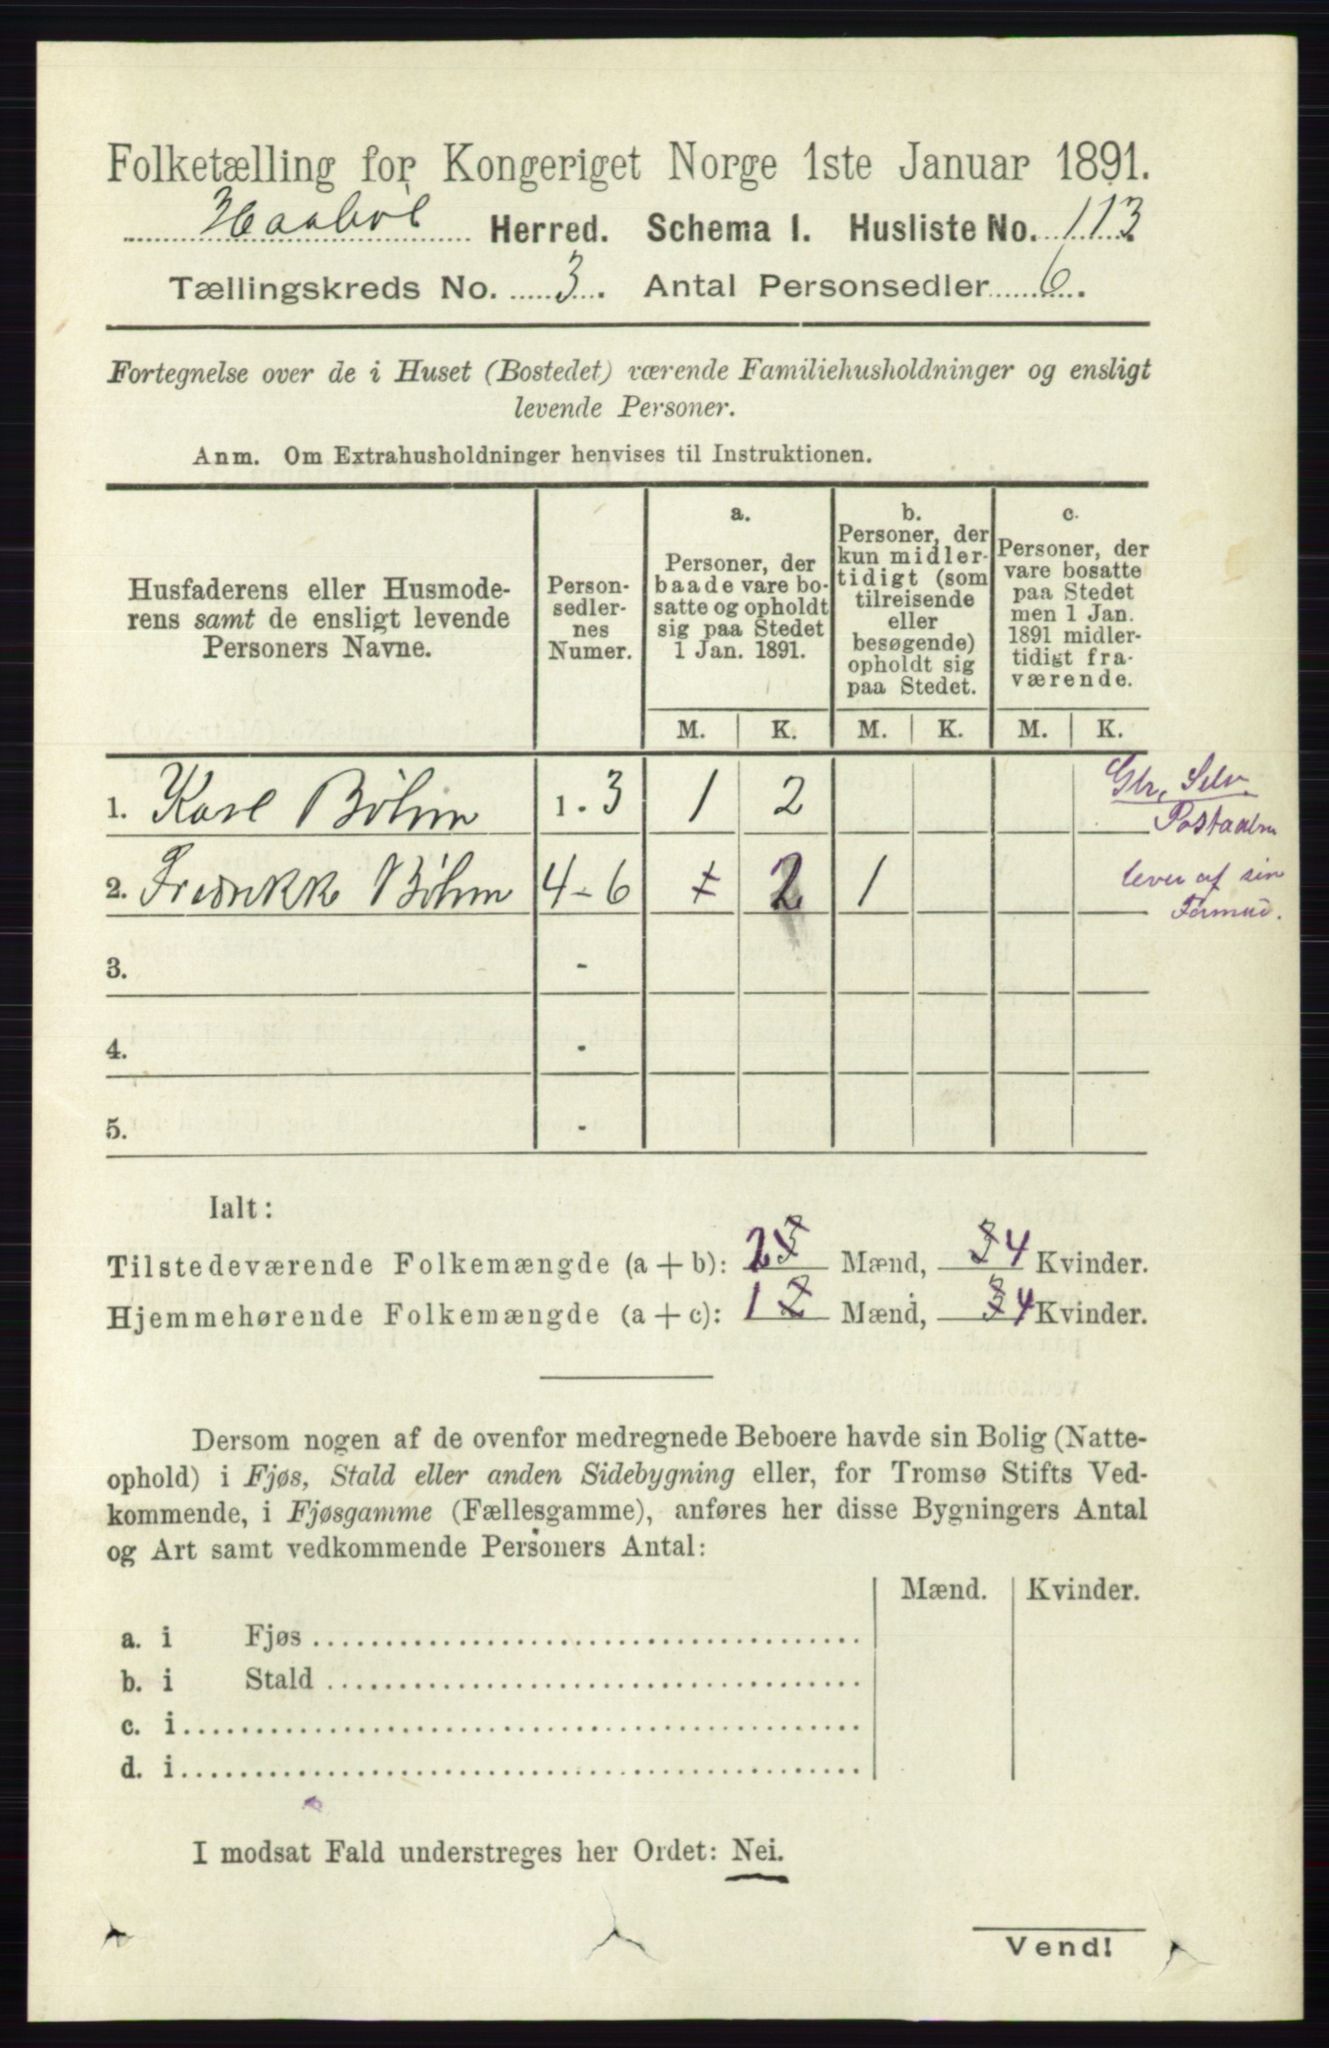 Folketælling for Kongeriget Norge 1ste Januar 1891.
Haabøl Herred. Schema I. Husliste No. 113
Tællingskreds No. 3. Antal Personsedler 6.
Fortegnelse over de i Huset (Bostedet) værende Familiehusholdninger og ensligt
levende Personer.
Anm. Om Extrahusholdninger henvises til Instruktionen.
Husfaderens eller Husmode-
rens samt de ensligt levende
Personers Navne.
Person-
sedler-
nes
Numer.
a.
Personer, der
baade vare bo-
satte og opholdt
sig paa Stedet
1 Jan. 1891.
b.
Personer, der
kun midler-
tidigt (som
tilreisende
eller
besøgende)
opholdt sig
paa Stedet.
c.
Personer, der
vare bosatte
paa Stedet
men 1 Jan.
1891 midler-
tidigt fra-
værende.
M. K. M. K. M. K.
1. Karl Bøhm 1 - 3 1 2
Gbr, Selv.
2. Fredrikke Bøhm 4 - 6 2 1
lever af sin
Formue.
3. -
4. -
5. -
Ialt:
Tilstedeværende Folkemængde (a + b): 2 Mænd, 3 4 Kvinder.
Hjemmehørende Folkemængde (a + c): 1 2 Mænd, 3 4 Kvinder.
Dersom nogen af de ovenfor medregnede Beboere havde sin Bolig (Natte-
ophold) i Fjøs, Stald eller anden Sidebygning eller, for Tromsø Stifts Ved-
kommende, i Fjøsgamme (Fællesgamme), anføres her disse Bygningers Antal
og Art samt vedkommende Personers Antal:
Mænd. Kvinder.
a. i Fjøs
b. i Stald
c. i
d. i
I modsat Fald understreges her Ordet: Nei.
Vend!